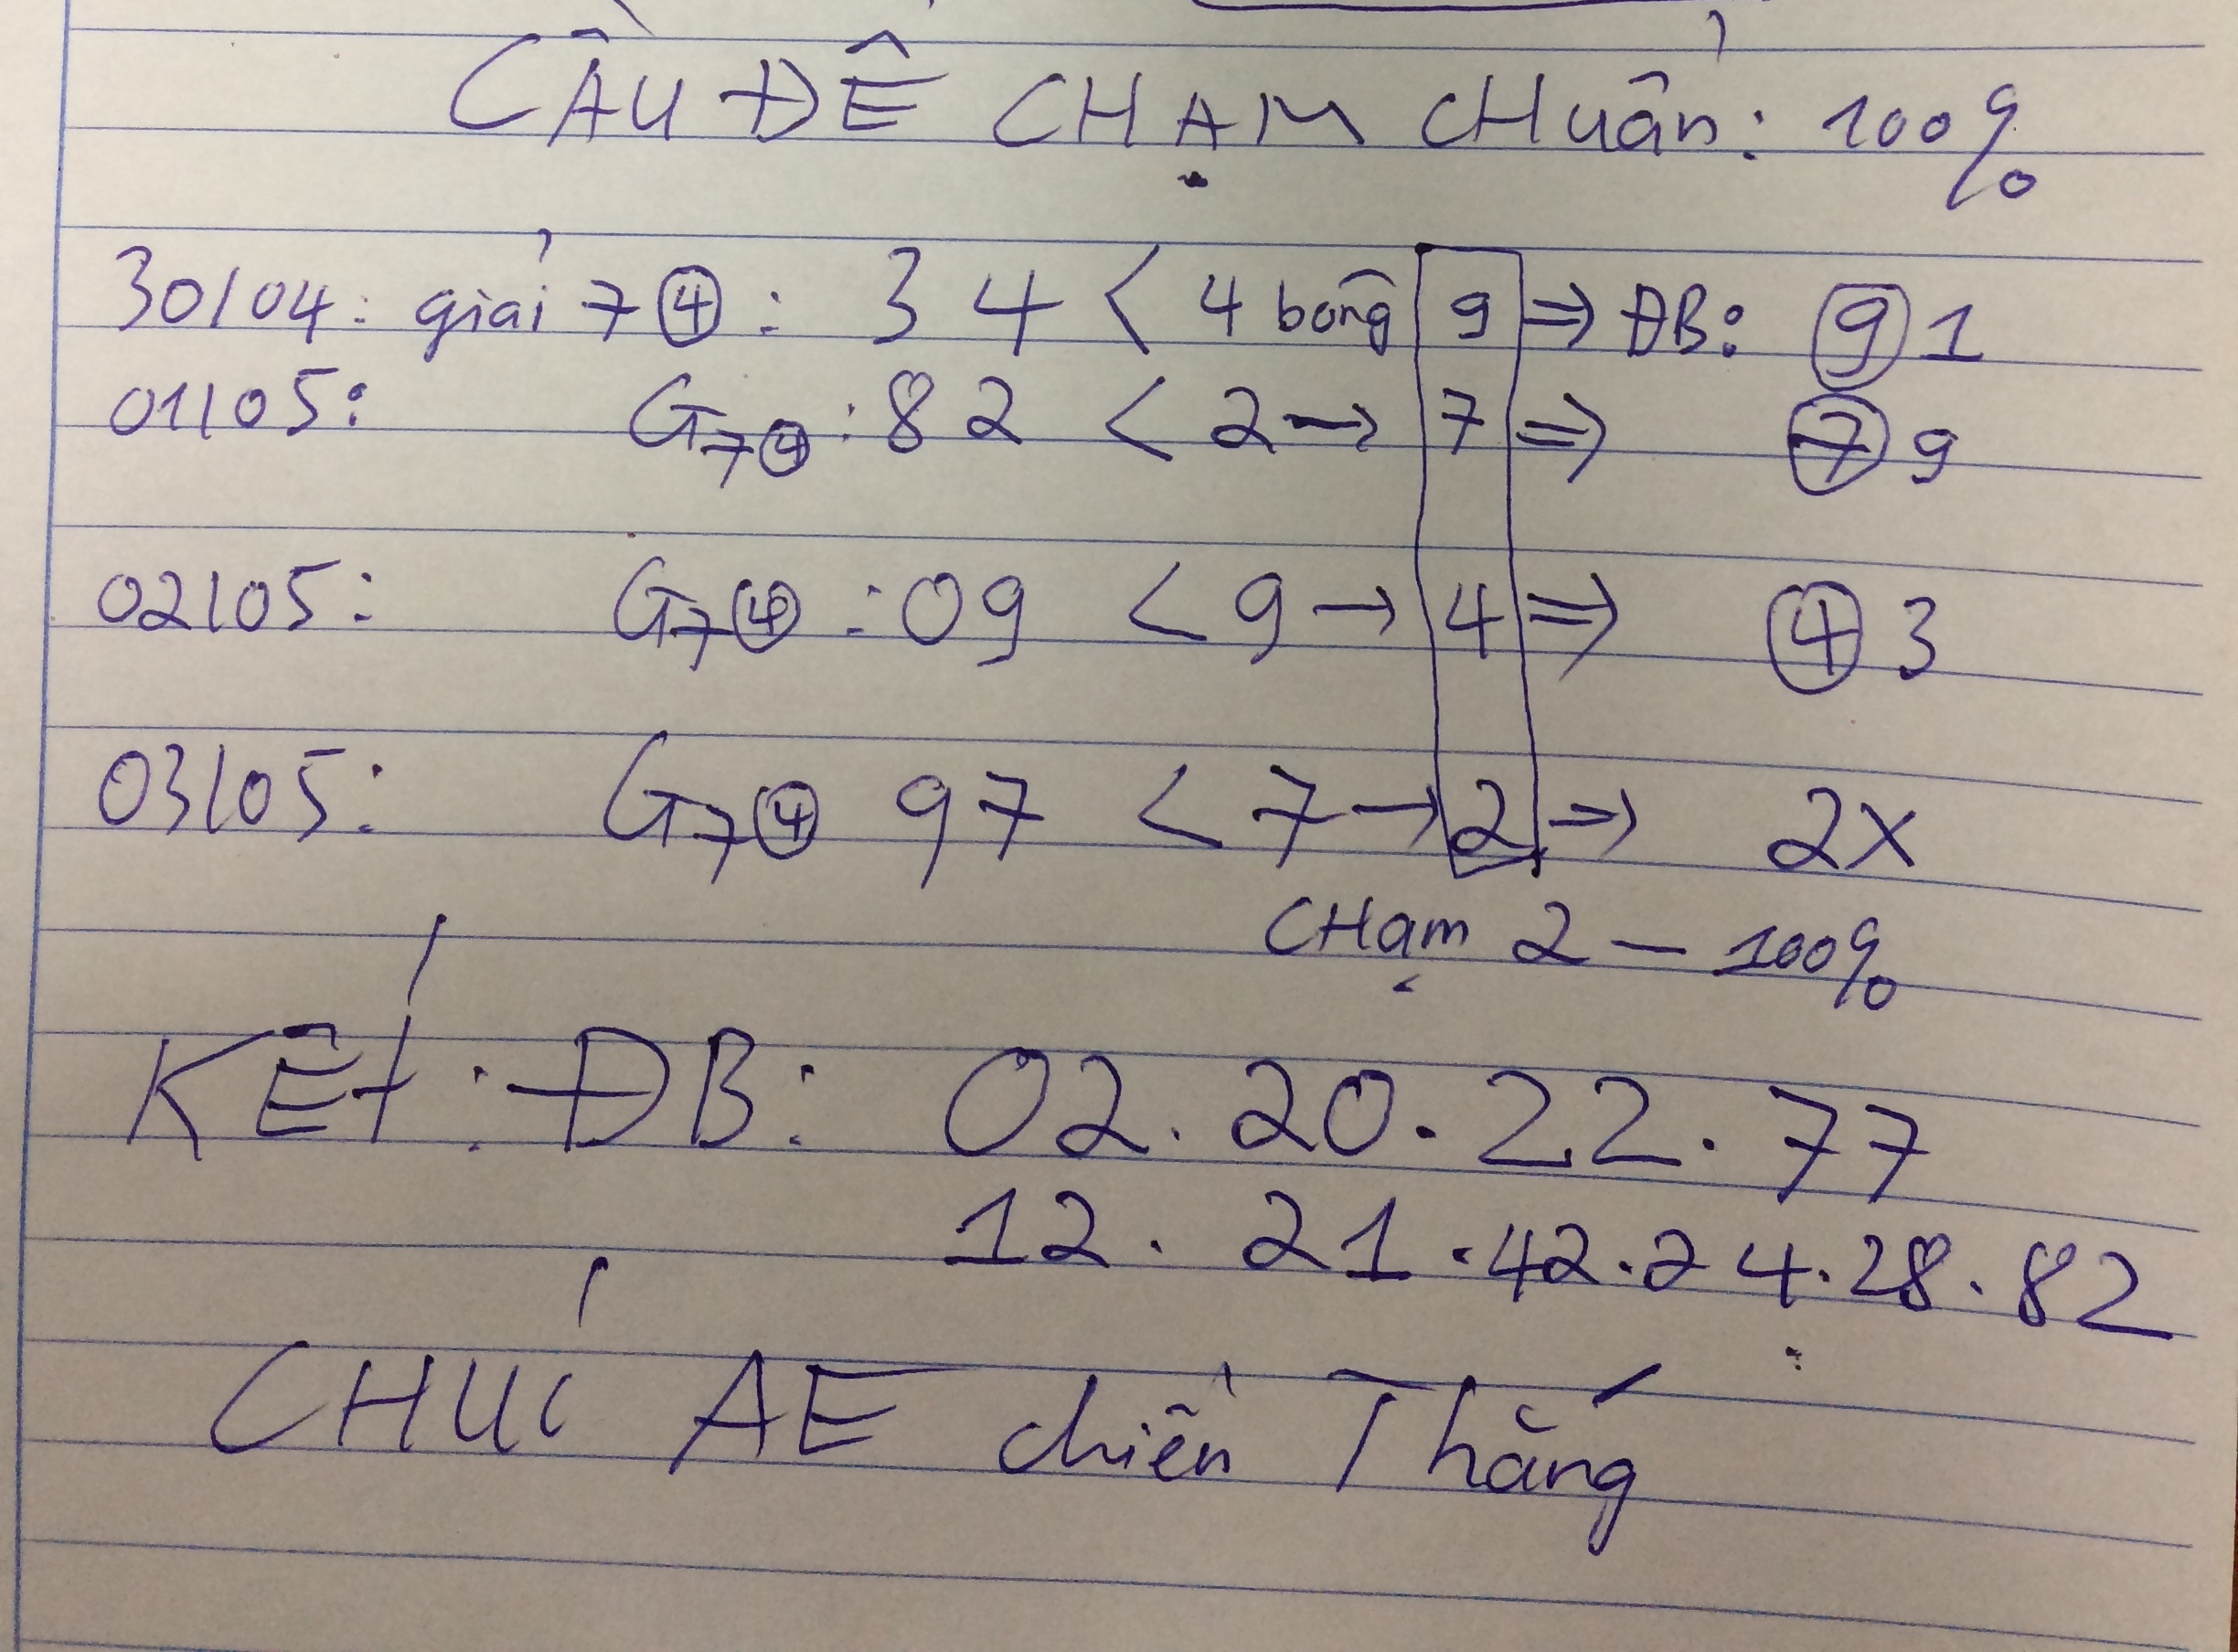 CẦU ĐỀ CHẠM CHuẩn: 100%
30/04: giải 7 ④ : 34 < 4 bóng 9 => ĐB: 91
01/05: G7④ : 82 < 2 → 7 => 79
02/05: G7④ : 09 < 9 → 4 => 43
03/05: G7④ 97 < 7 → 2 => 2X
CHạm 2 — 100%
KẾt : ĐB: 02. 20. 22. 77
12. 21. 42. 24. 28. 82
CHÚC AE chiến Thắng